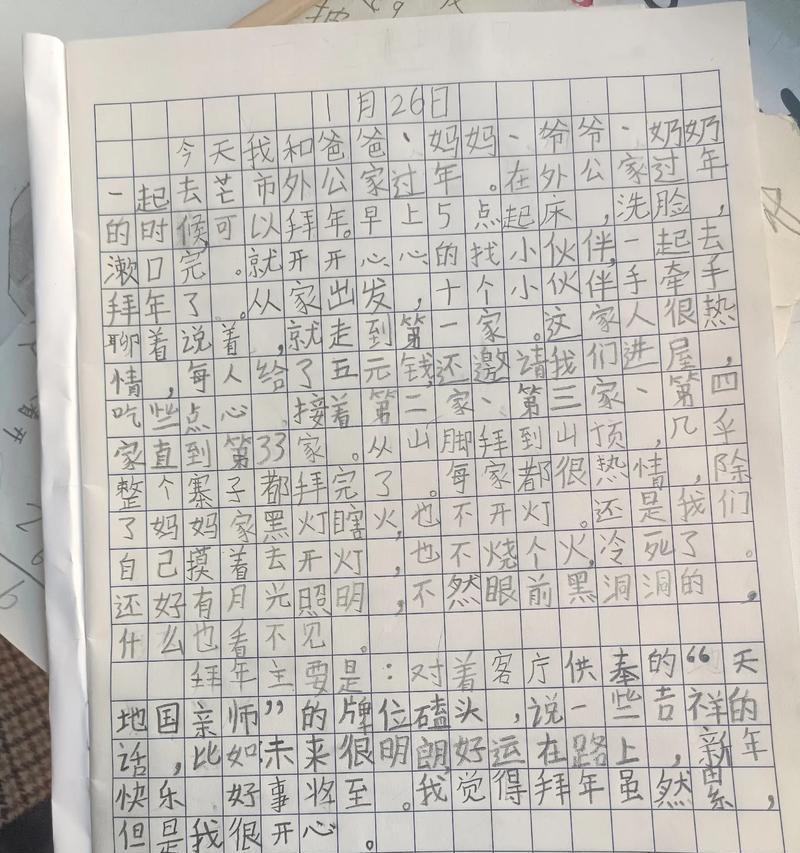 1月26日
今天我和爸爸、妈妈、爷爷、奶奶
一起去芒市外公家过年。在外公家过年
的时候,可以拜年。早上5点起床,洗脸,
漱口完。就开开心心的找小伙伴,一起去
拜年了。从家出发,十个小伙伴手牵手
聊着说着,就走到第一家。这家人很热
情,每人给了五元钱,还邀请我们进屋,
吃些点心。接着第二家、第三家、第四
家直到第33家。从山脚拜到山顶,几乎
整个寨子都拜完了。每家都很热情,除
了妈妈家黑灯瞎火,也不开灯。还是我们
自己摸着去开灯,也不烧个火,冷死了。
还好有月光照明,不然眼前黑洞洞的,
什么也看不见。
拜年主要是:对着客厅供奉的“天
地国亲师”的牌位磕头,说一些吉祥的
话,比如:未来很明朗,好运在路上,新年
快乐 好事将至。我觉得拜年虽然累,
但是我很开心。